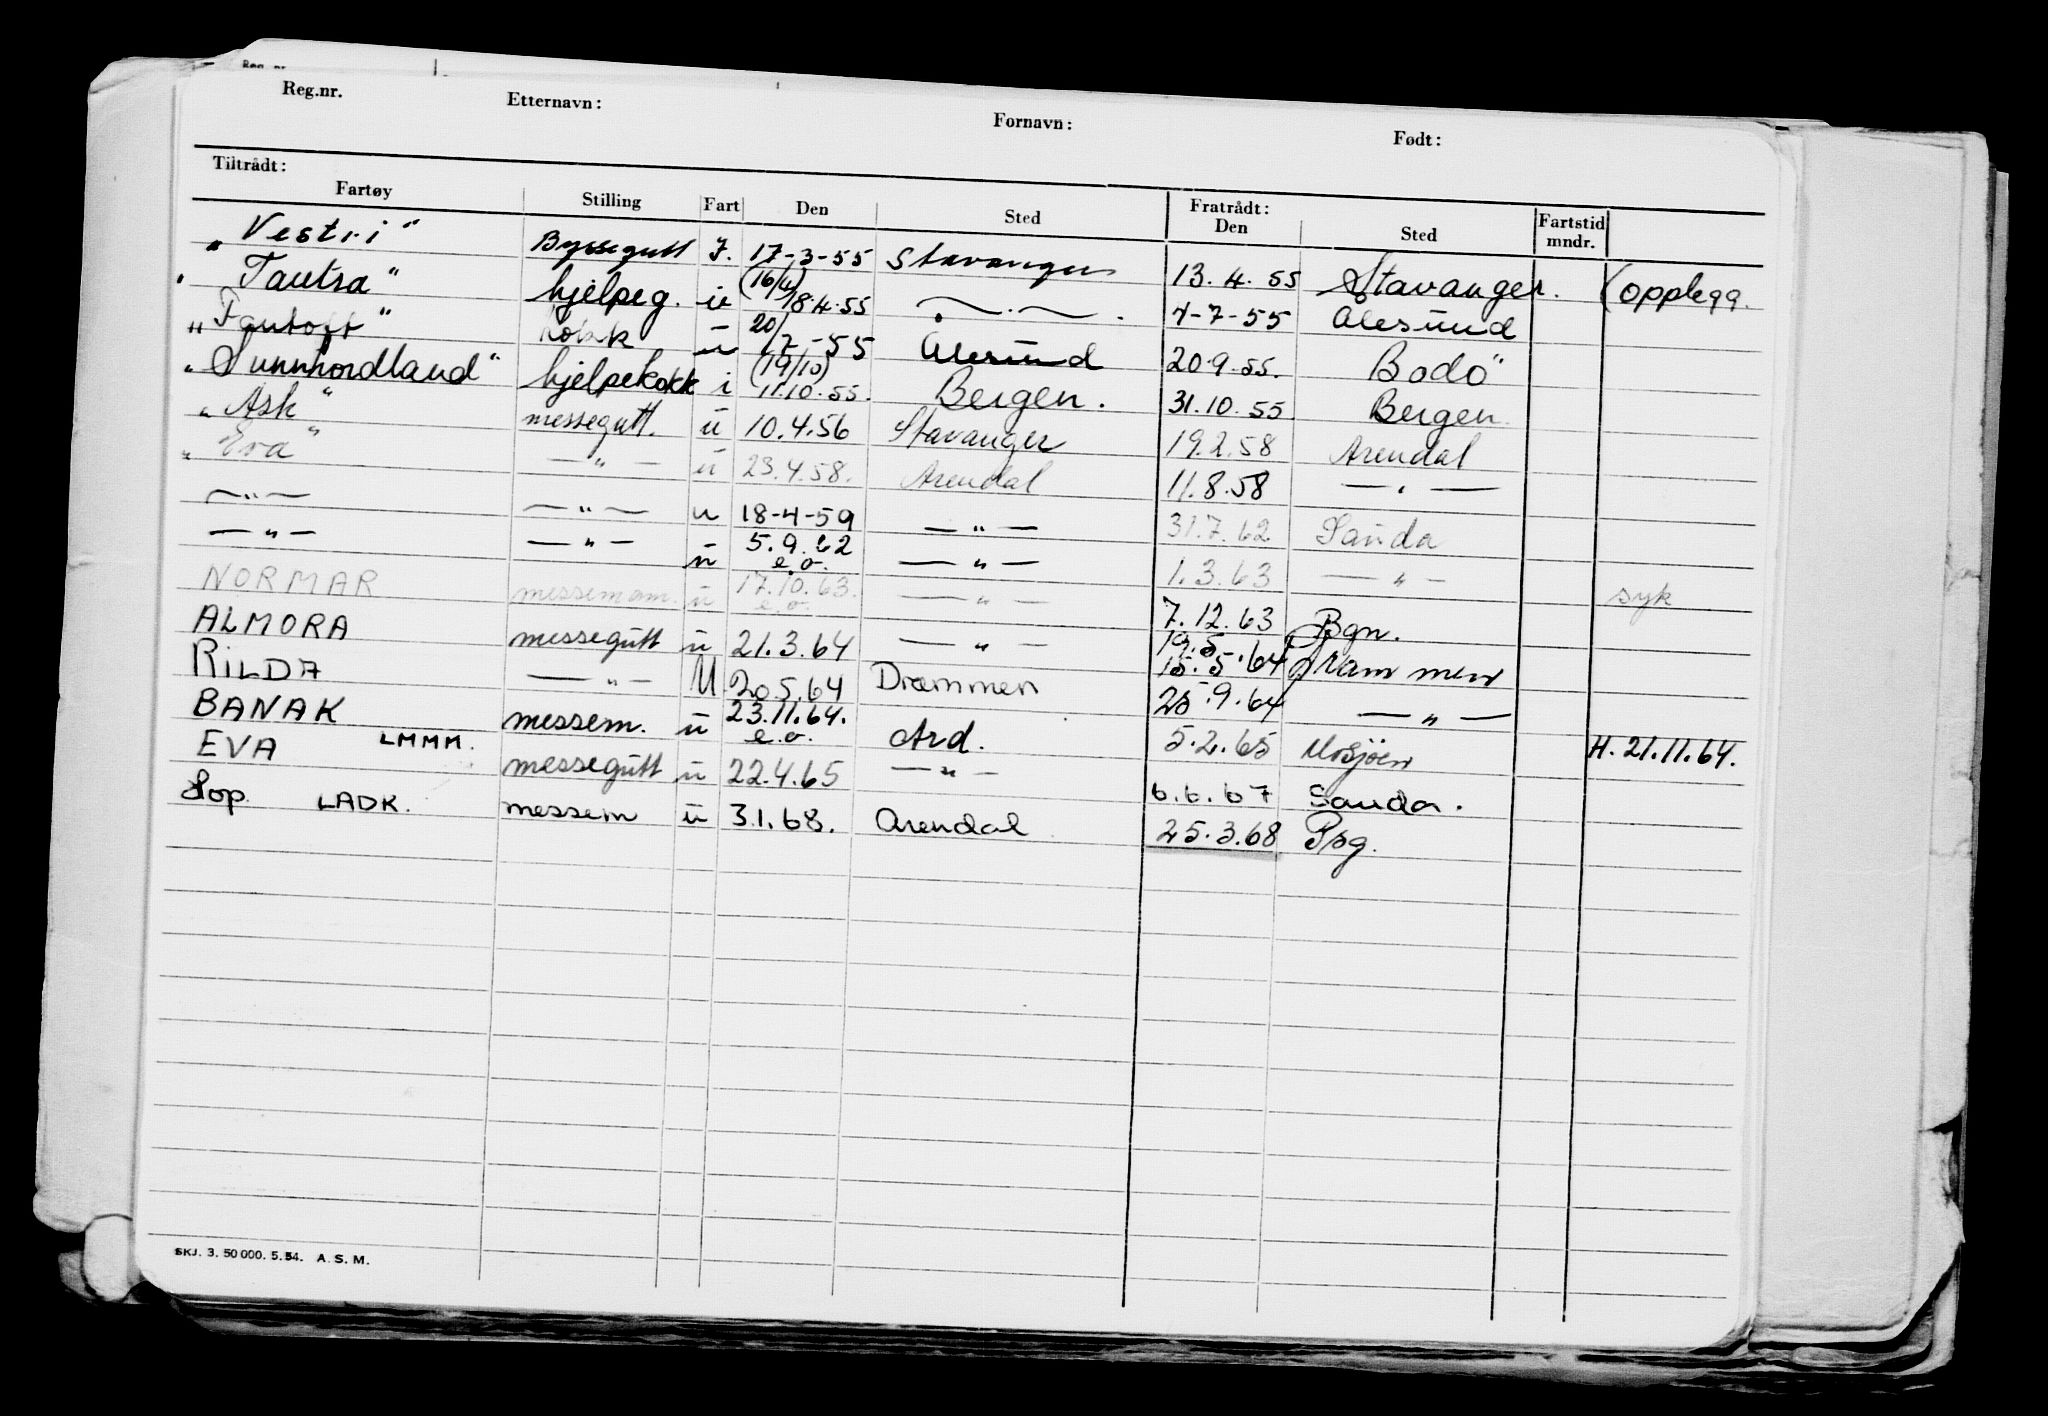 Reg.nr. Etternavn: Fornavn: Født:
Tiltrådt: Fratrådt:
Fartøy Stilling Fart Den Sted Den Sted Fartstid mndr.
"Vestri" Byssegutt J. 17-3-55 Stavanger 13.4.55 Stavanger. (opplegg.
"Tautra" hjelpeg. u (16/4) 18.4.55 — . — . 7-7-55 Ålesund
"Fantoft" kokk u 20/7-55 Ålesund 20.9.55. Bodö
"Sunnhordland" hjelpekokk i (19/10) 11.10.55. Bergen. 31.10.55 Bergen.
"Ask" messegutt. u 10.4.56 Stavanger 19.2.58 Arendal
"Eva" — " — u 23.4.58. Arendal 11.8.58 — " —
— " — — " — u 18-4-59 — " — 31.7.62 Sauda
— " — — " — u 5.9.62 e.o. — " — 1.3.63 — " —
NORMAR messemann. u 17.10.63. e.o. — " — 7.12.63 Bgn. syk
ALMORA messegutt u 21.3.64 — " — 19.5 15.5.64 Drammen
RILDA — " — U 20.5.64 Drammen 25.9.64 — " —
BANAK messem. u 23.11.64. e.o. Ard. 5.2.65 Mosjöen H. 21.11.64.
EVA LMMM. messegutt u 22.4.65 — " — 6.6.67 Sauda.
Hop LADK. messem u 3.1.68. Arendal 25.3.68 Psg.
SKJ. 3. 50 000. 5. 54. A. S. M.